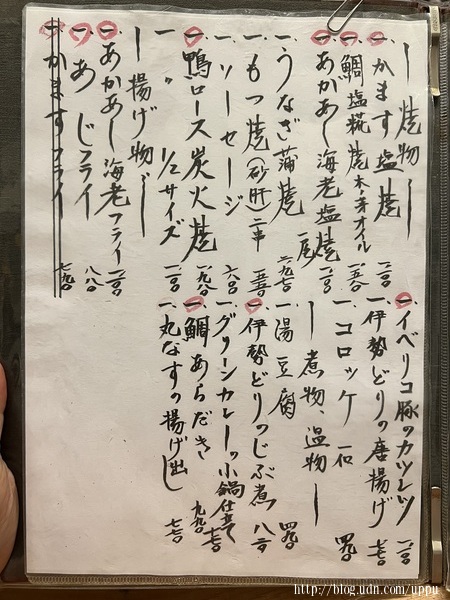 ー焼物ー
一、かます塩焼 一二〇〇
一、鯛塩糀焼木の芽オイル 一、五〇
一、あかあし海老塩焼 一尾
一、うなぎ蒲焼 六、九七〇
一、もつ焼(砂肝)二串 五五〇
一、ソーセージ 六八〇
一、鴨ロース炭火焼 一、九八〇
一、〃 1/2サイズ
ー揚げ物ー
一、あかあし海老フライ
一、あじフライ 八八〇
一、かますフライ 七九〇
一、イベリコ豚のカツレツ
一、伊勢どりの唐揚げ
一、コロッケ 一和
ー煮物、温物ー
一、湯豆腐
一、伊勢どりのじぶ煮 八八〇
一、グリーンカレーの小鍋仕立て
一、鯛あらだき 九九〇
一、丸なすの揚げ出し 七七〇
http://blog.udn.com/uppu